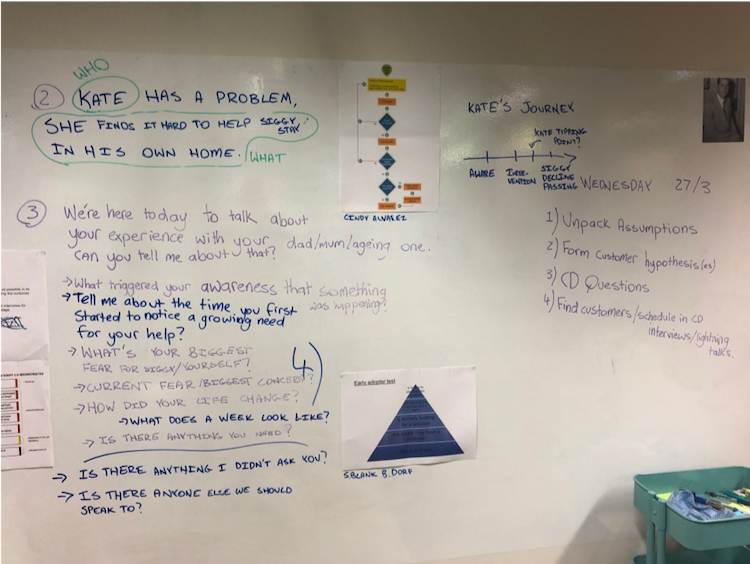 WHO
2 KATE HAS A PROBLEM,
SHE FINDS IT HARD TO HELP SIGGY STAY
IN HIS OWN HOME. WHAT
CINDY ALVAREZ
KATE'S JOURNEY
KATE TIPPING
POINT?
AWARE
INTER-
VENTION
SIGGY
DECLINE
PASSING
WEDNESDAY 27/3
1) Unpack Assumptions
2) Form customer hypothesis(es)
3) CD Questions
4) Find customers/schedule in CD
interviews/lightning
talks.
3 We're here today to talk about
your experience with your dad/mum/ageing one.
Can you tell me about that?
→What triggered your awareness that something
was happening?
→Tell me about the time you first
started to notice a growing need
for your help?
→WHAT'S YOUR BIGGEST
FEAR FOR SIGGY/YOURSELF?
→CURRENT FEAR/BIGGEST CONCERN?
→HOW DID YOUR LIFE CHANGE?
→WHAT DOES A WEEK LOOK LIKE?
→IS THERE ANYTHING YOU NEED?
4)
→ IS THERE ANYTHING I DIDN'T ASK YOU?
→ IS THERE ANYONE ELSE WE SHOULD
SPEAK TO?
Early adopter test
S.BLANK B.DORF